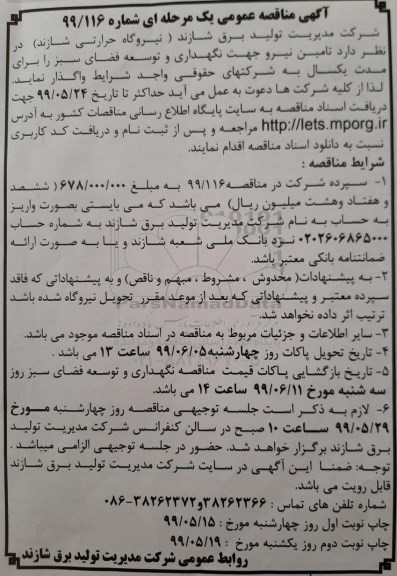 آگهی مناقصه عمومی یک مرحله ای شماره ۹۹/۱۱۶
شرکت مدیریت تولید برق شازند ( نیروگاه حرارتی شازند) در
نظر دارد تامین نیرو جهت نگهداری و توسعه فضای سبز را برای
مدت یکسال به شرکتهای حقوقی واجد شرایط واگذار نماید.
لذا از کلیه شرکت ها دعوت به عمل می آید حداکثر تا تاریخ ۹۹/۰۵/۲۴ جهت
دریافت اسناد مناقصه به سایت پایگاه اطلاع رسانی مناقصات کشور به آدرس
http://iets.mporg.ir مراجعه و پس از ثبت نام و دریافت کد کاربری
نسبت به دانلود اسناد مناقصه اقدام نمایند.
شرایط مناقصه :
۱- سپرده شرکت در مناقصه ۹۹/۱۱۶ به مبلغ ۶۷۸/۰۰۰/۰۰۰ ( ششصد
و هفتاد وهشت میلیون ریال) می باشد که می بایستی بصورت واریز
به حساب به نام شرکت مدیریت تولید برق شازند به شماره حساب
۰۲۰۲۶۰۶۸۶۵۰۰۰ نزد بانک ملی شعبه شازند و یا به صورت ارائه
ضمانتنامه بانکی معتبر باشد.
۲- به پیشنهادات( مخدوش ، مشروط ، مبهم و ناقص) و به پیشنهاداتی که فاقد
سپرده معتبر و پیشنهاداتی که بعد از موعد مقرر تحویل نیروگاه شده باشد
ترتیب اثر داده نخواهد شد.
۳- سایر اطلاعات و جزئیات مربوط به مناقصه در اسناد مناقصه موجود می باشد.
۴- تاریخ تحویل پاکات روز چهارشنبه ۹۹/۰۶/۰۵ ساعت ۱۳ می باشد .
۵- تاریخ بازگشایی پاکات قیمت مناقصه نگهداری و توسعه فضای سبز روز
سه شنبه مورخ ۹۹/۰۶/۱۱ ساعت ۱۴ می باشد.
۶- لازم به ذکر است جلسه توجیهی مناقصه روز چهارشنبه مورخ
۹۹/۰۵/۲۹ ساعت ۱۰ صبح در سالن کنفرانس شرکت مدیریت تولید
برق شازند برگزار خواهد شد. حضور در جلسه توجیهی الزامی میباشد .
توجه: ضمنا این آگهی در سایت شرکت مدیریت تولید برق شازند
قابل رویت می باشد.
شماره تلفن های تماس : ۳۸۲۶۲۳۶۶و۳۸۲۶۲۳۷۲-۰۸۶
چاپ نوبت اول روز چهارشنبه مورخ : ۹۹/۰۵/۱۵
چاپ نوبت دوم روز یکشنبه مورخ : ۹۹/۰۵/۱۹
روابط عمومی شرکت مدیریت تولید برق شازند